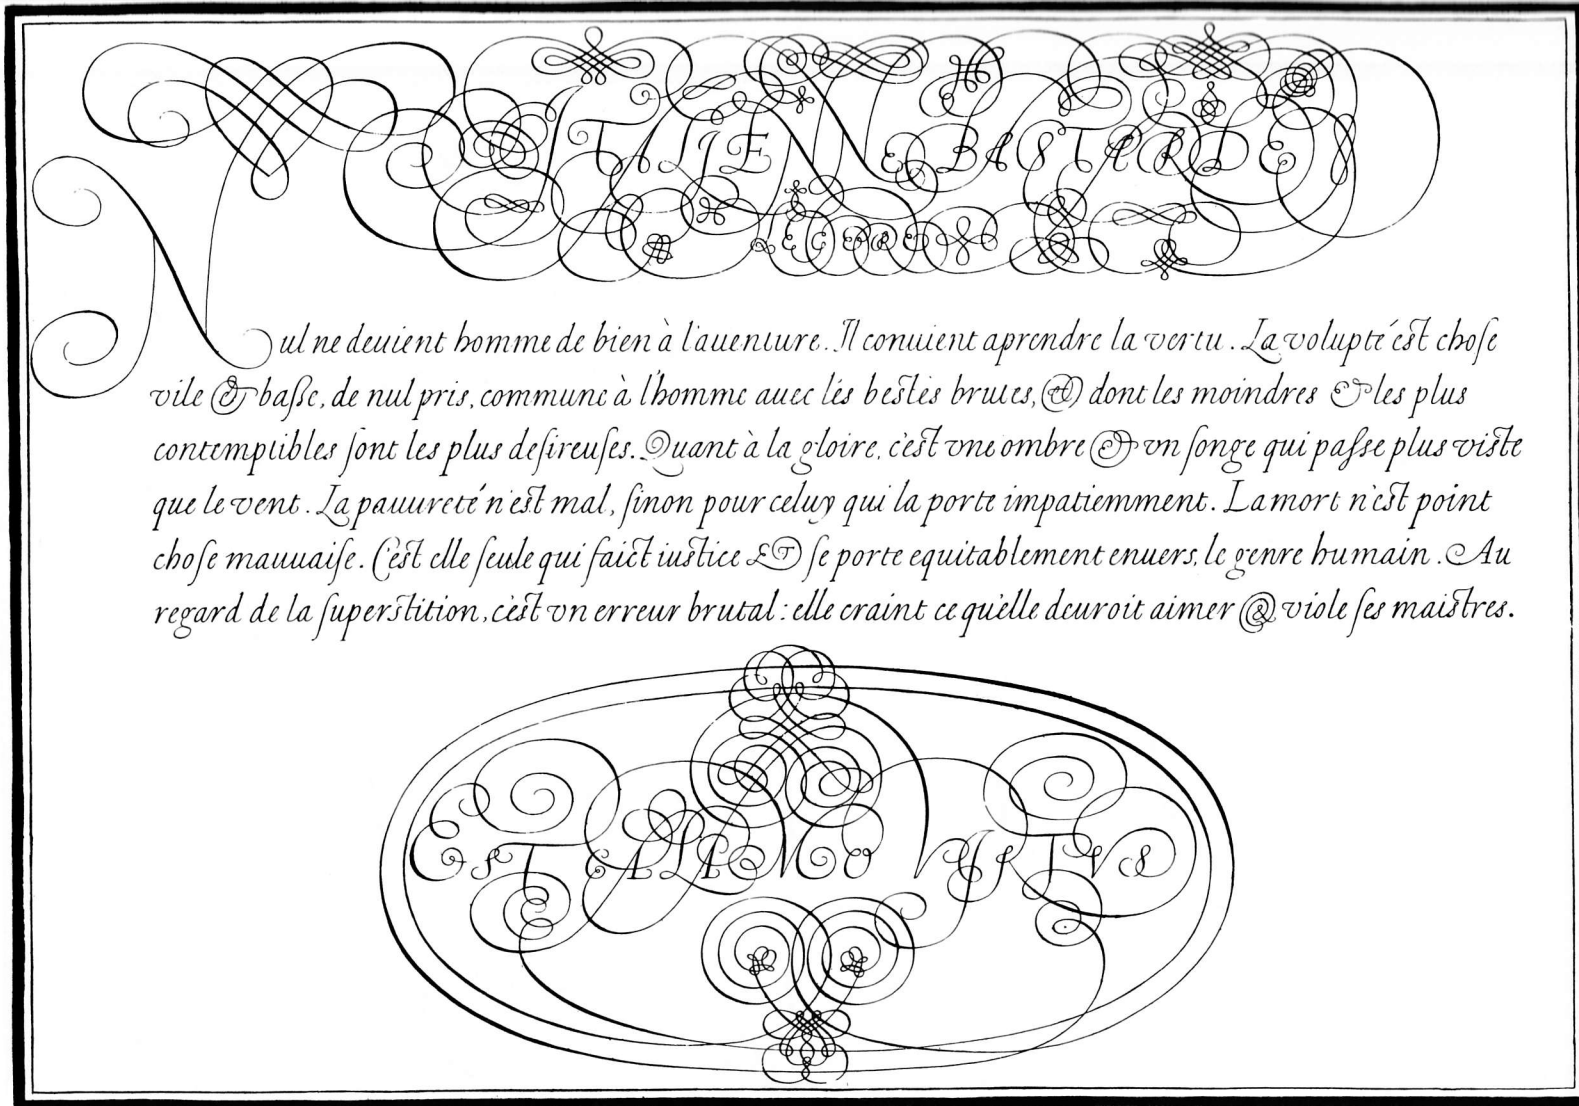 ITALIENNE BASTARDE
Nul ne deuient homme de bien à l'auenture. Il conuient aprendre la vertu. La volupté est choſe
vile & baſſe, de nul pris, commune à l'homme auec les bestes brutes, & dont les moindres & les plus
contemptibles ſont les plus deſireuſes. Quant à la gloire, c'est vne ombre & vn ſonge qui paſſe plus viste
que le vent. La pauureté n'est mal, ſinon pour celuy qui la porte impatiemment. La mort n'est point
choſe mauuaiſe. C'est elle ſeule qui faict iustice & ſe porte equitablement enuers, le genre humain. Au
regard de la ſuperstition, c'est vn erreur brutal: elle craint ce qu'elle deuroit aimer & viole ſes maistres.